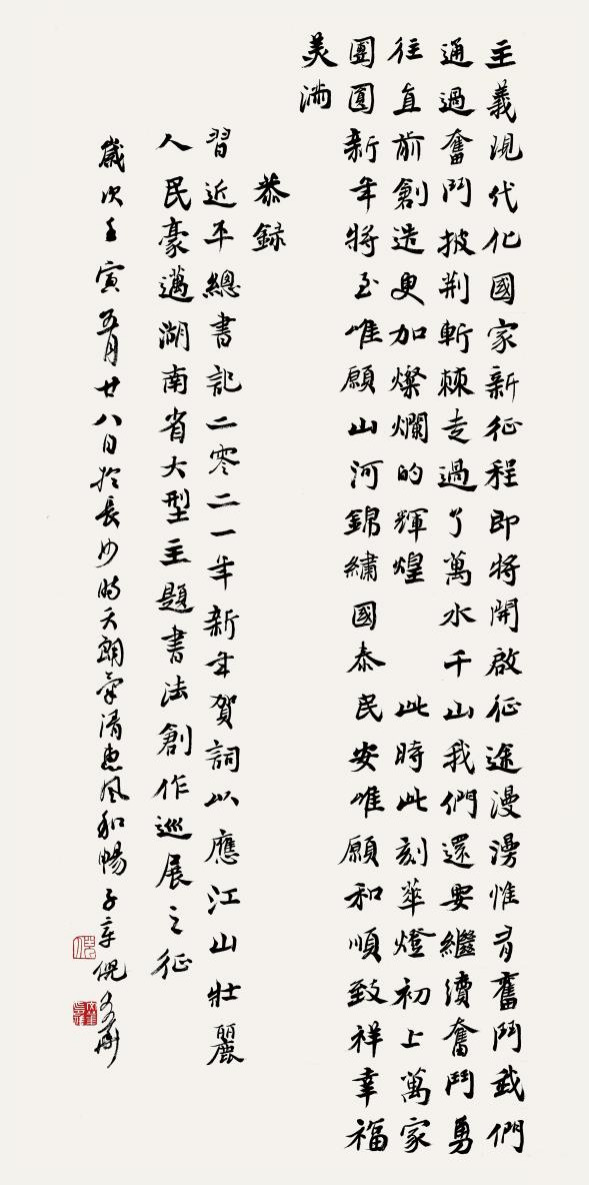 主義現代化國家新征程即將開啟征途漫漫惟有奮鬥我們
通過奮鬥披荆斬棘走過了萬水千山我們還要繼續奮鬥勇
往直前創造更加燦爛的輝煌 此時此刻華燈初上萬家
團圓新年將至唯願山河錦繡國泰民安唯願和順致祥幸福
美滿
恭録
習近平總書記二零二一年新年賀詞以應江山壯麗
人民豪邁湖南省大型主題書法創作巡展之征
歲次壬寅五月廿八日於長沙時天朗氣清惠風和暢